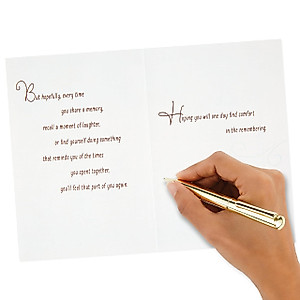 But hopefully, every time
you share a memory,
recall a moment of laughter,
or find yourself doing something
that reminds you of the times
you spent together,
you'll feel that part of you again.
Hoping you will one day find comfort
in the remembering.